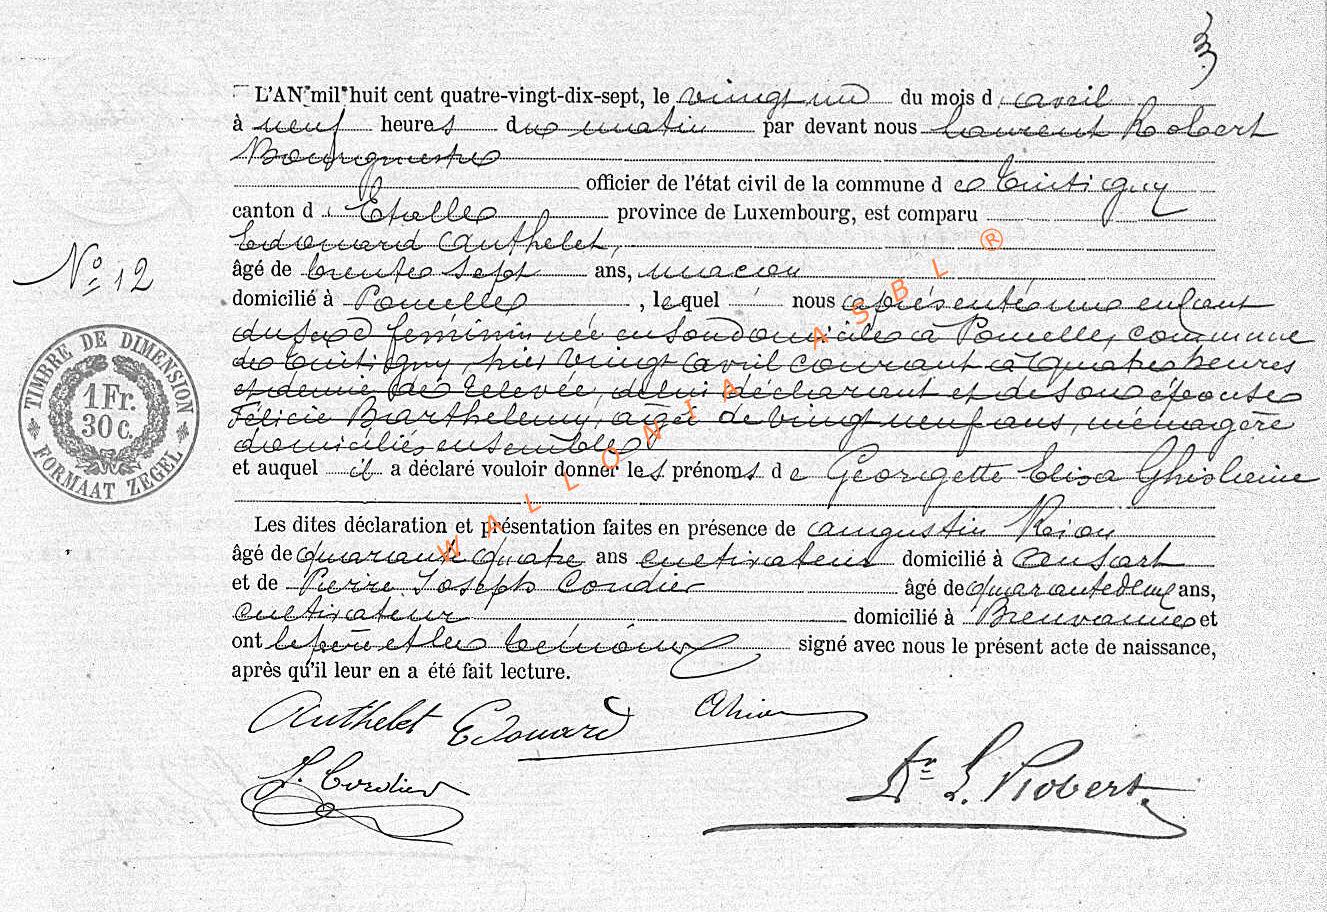 3
L'AN mil huit cent quatre-vingt-dix-sept, le vingt un du mois d avril
à neuf heures du matin par devant nous Laurent Robert
Bourgmestre
officier de l'état civil de la commune de Tintigny
canton d Etalle province de Luxembourg, est comparu
Edouard Authelet,
âgé de trente sept ans, maçon
N° 12
domicilié à Poncelle, lequel nous a présenté une enfant
du sexe féminin née en son domicile à Poncelle, commune
de Tintigny, hier vingt avril courant à quatre heures
et demie de relevée, de lui déclarant et de son épouse
Félicie Barthelemy, agée de vingt neuf ans, ménagère
domiciliés ensemble
et auquel il a déclaré vouloir donner les prénoms de Georgette Elisa Ghislaine
Les dites déclaration et présentation faites en présence de Augustin
âgé de quarante quatre ans cultivateur domicilié à Ansart
et de Pierre Joseph Cordier âgé de quarante deux ans,
cultivateur domicilié à Breuvanne et
ont le père et les témoins signé avec nous le présent acte de naissance,
après qu'il leur en a été fait lecture.
Authelet Edouard
J. Cordier
Dr L. Robert
TIMBRE DE DIMENSION
1 Fr.
30 C.
FORMAAT ZEGEL
WALLONIA ASBL ®